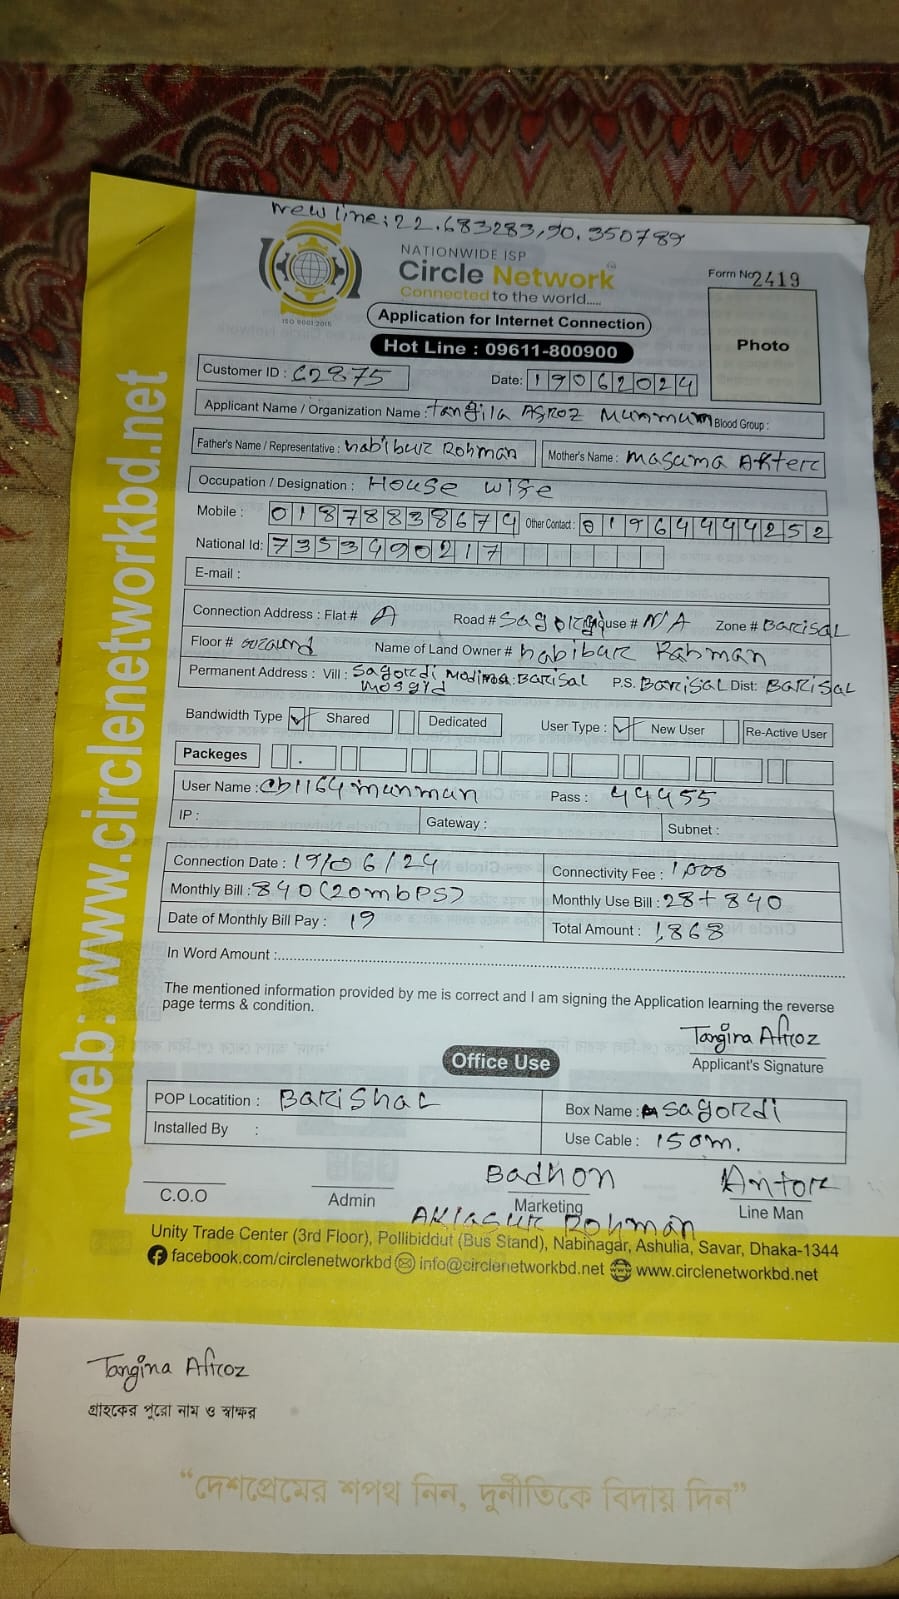 New line: 22.683283, 90.350789
NATIONWIDE ISP
Circle Network
Connected to the world.....
ISO 9001:2015
Form No 2419
Application for Internet Connection
Hot Line : 09611-800900
Photo
Customer ID : C2875
Date: 19062024
Applicant Name / Organization Name : Tangila Afroz Munmun Blood Group :
Father's Name / Representative : Habibur Rohman Mother's Name : Masuma Akter
Occupation / Designation : House wife
Mobile : 01878838674 Other Contact : 01964444252
National Id: 7353490217
E-mail :
Connection Address : Flat # A Road # Sagordi House # N/A Zone # Barisal
Floor # Ground Name of Land Owner # Habibur Rahman
Permanent Address : Vill : Sagordi Madina Mosgid : Barisal P.S. Barisal Dist: Barisal
Bandwidth Type Shared Dedicated User Type : New User Re-Active User
Packeges
User Name : cb1164munmun Pass : 44455
IP : Gateway : Subnet :
Connection Date : 19/06/24 Connectivity Fee : 1,000
Monthly Bill : 840 (20mbps) Monthly Use Bill : 28+840
Date of Monthly Bill Pay : 19 Total Amount : 1,868
In Word Amount :
The mentioned information provided by me is correct and I am signing the Application learning the reverse
page terms & condition.
Tangina Afroz
Applicant's Signature
Office Use
POP Locatition : Barishal Box Name : Sagordi
Installed By : Use Cable : 150m.
Badhon Antor
C.O.O Admin Marketing Line Man
Rohman
Unity Trade Center (3rd Floor), Pollibiddut (Bus Stand), Nabinagar, Ashulia, Savar, Dhaka-1344
facebook.com/circlenetworkbd info@circlenetworkbd.net www.circlenetworkbd.net
web: www.circlenetworkbd.net
Tangina Afroz
গ্রাহকের পুরো নাম ও স্বাক্ষর
“দেশপ্রেমের শপথ নিন, দুর্নীতিকে বিদায় দিন”